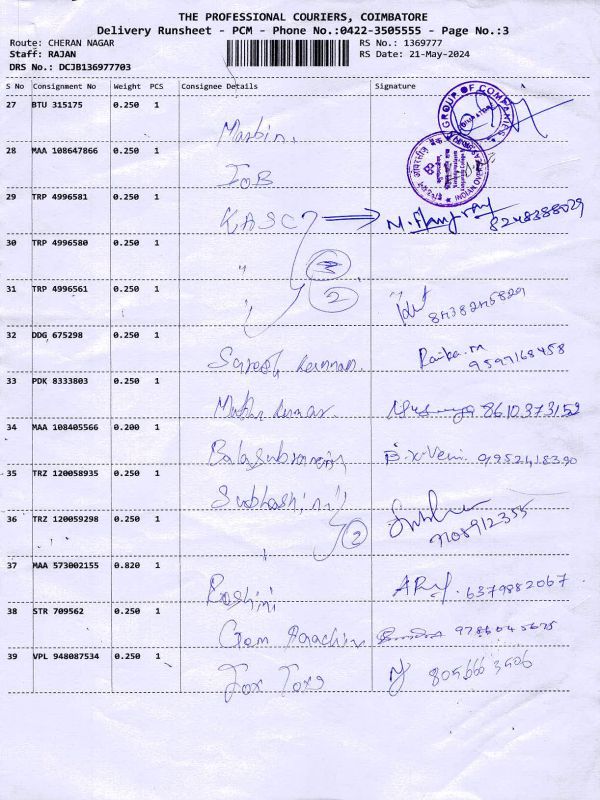 THE PROFESSIONAL COURIERS, COIMBATORE
Delivery Runsheet - PCM - Phone No.:0422-3505555 - Page No.:3
Route: CHERAN NAGAR RS No.: 1369777
Staff: RAJAN RS Date: 21-May-2024
DRS No.: DCJB136977703
S No Consignment No Weight PCS Consignee Details Signature
27 BTU 315175 0.250 1
GROUP OF COMPANIES
Marbin.
28 MAA 108647866 0.250 1
IOB
29 TRP 4996581 0.250 1
KASC 8248388029
30 TRP 4996580 0.250 1
" 3
31 TRP 4996561 0.250 1
" 2 8438245829
32 DDG 675298 0.250 1
9597168458
33 PDK 8333803 0.250 1
8610373152
34 MAA 108405566 0.200 1
B.X.Veni. 9952418390
35 TRZ 120058935 0.250 1
Subhashini
36 TRZ 120059298 0.250 1
2 9108912355
37 MAA 573002155 0.820 1
Roshini 6379882067
38 STR 709562 0.250 1
9786045675
39 VPL 948087534 0.250 1
Fox Toxs